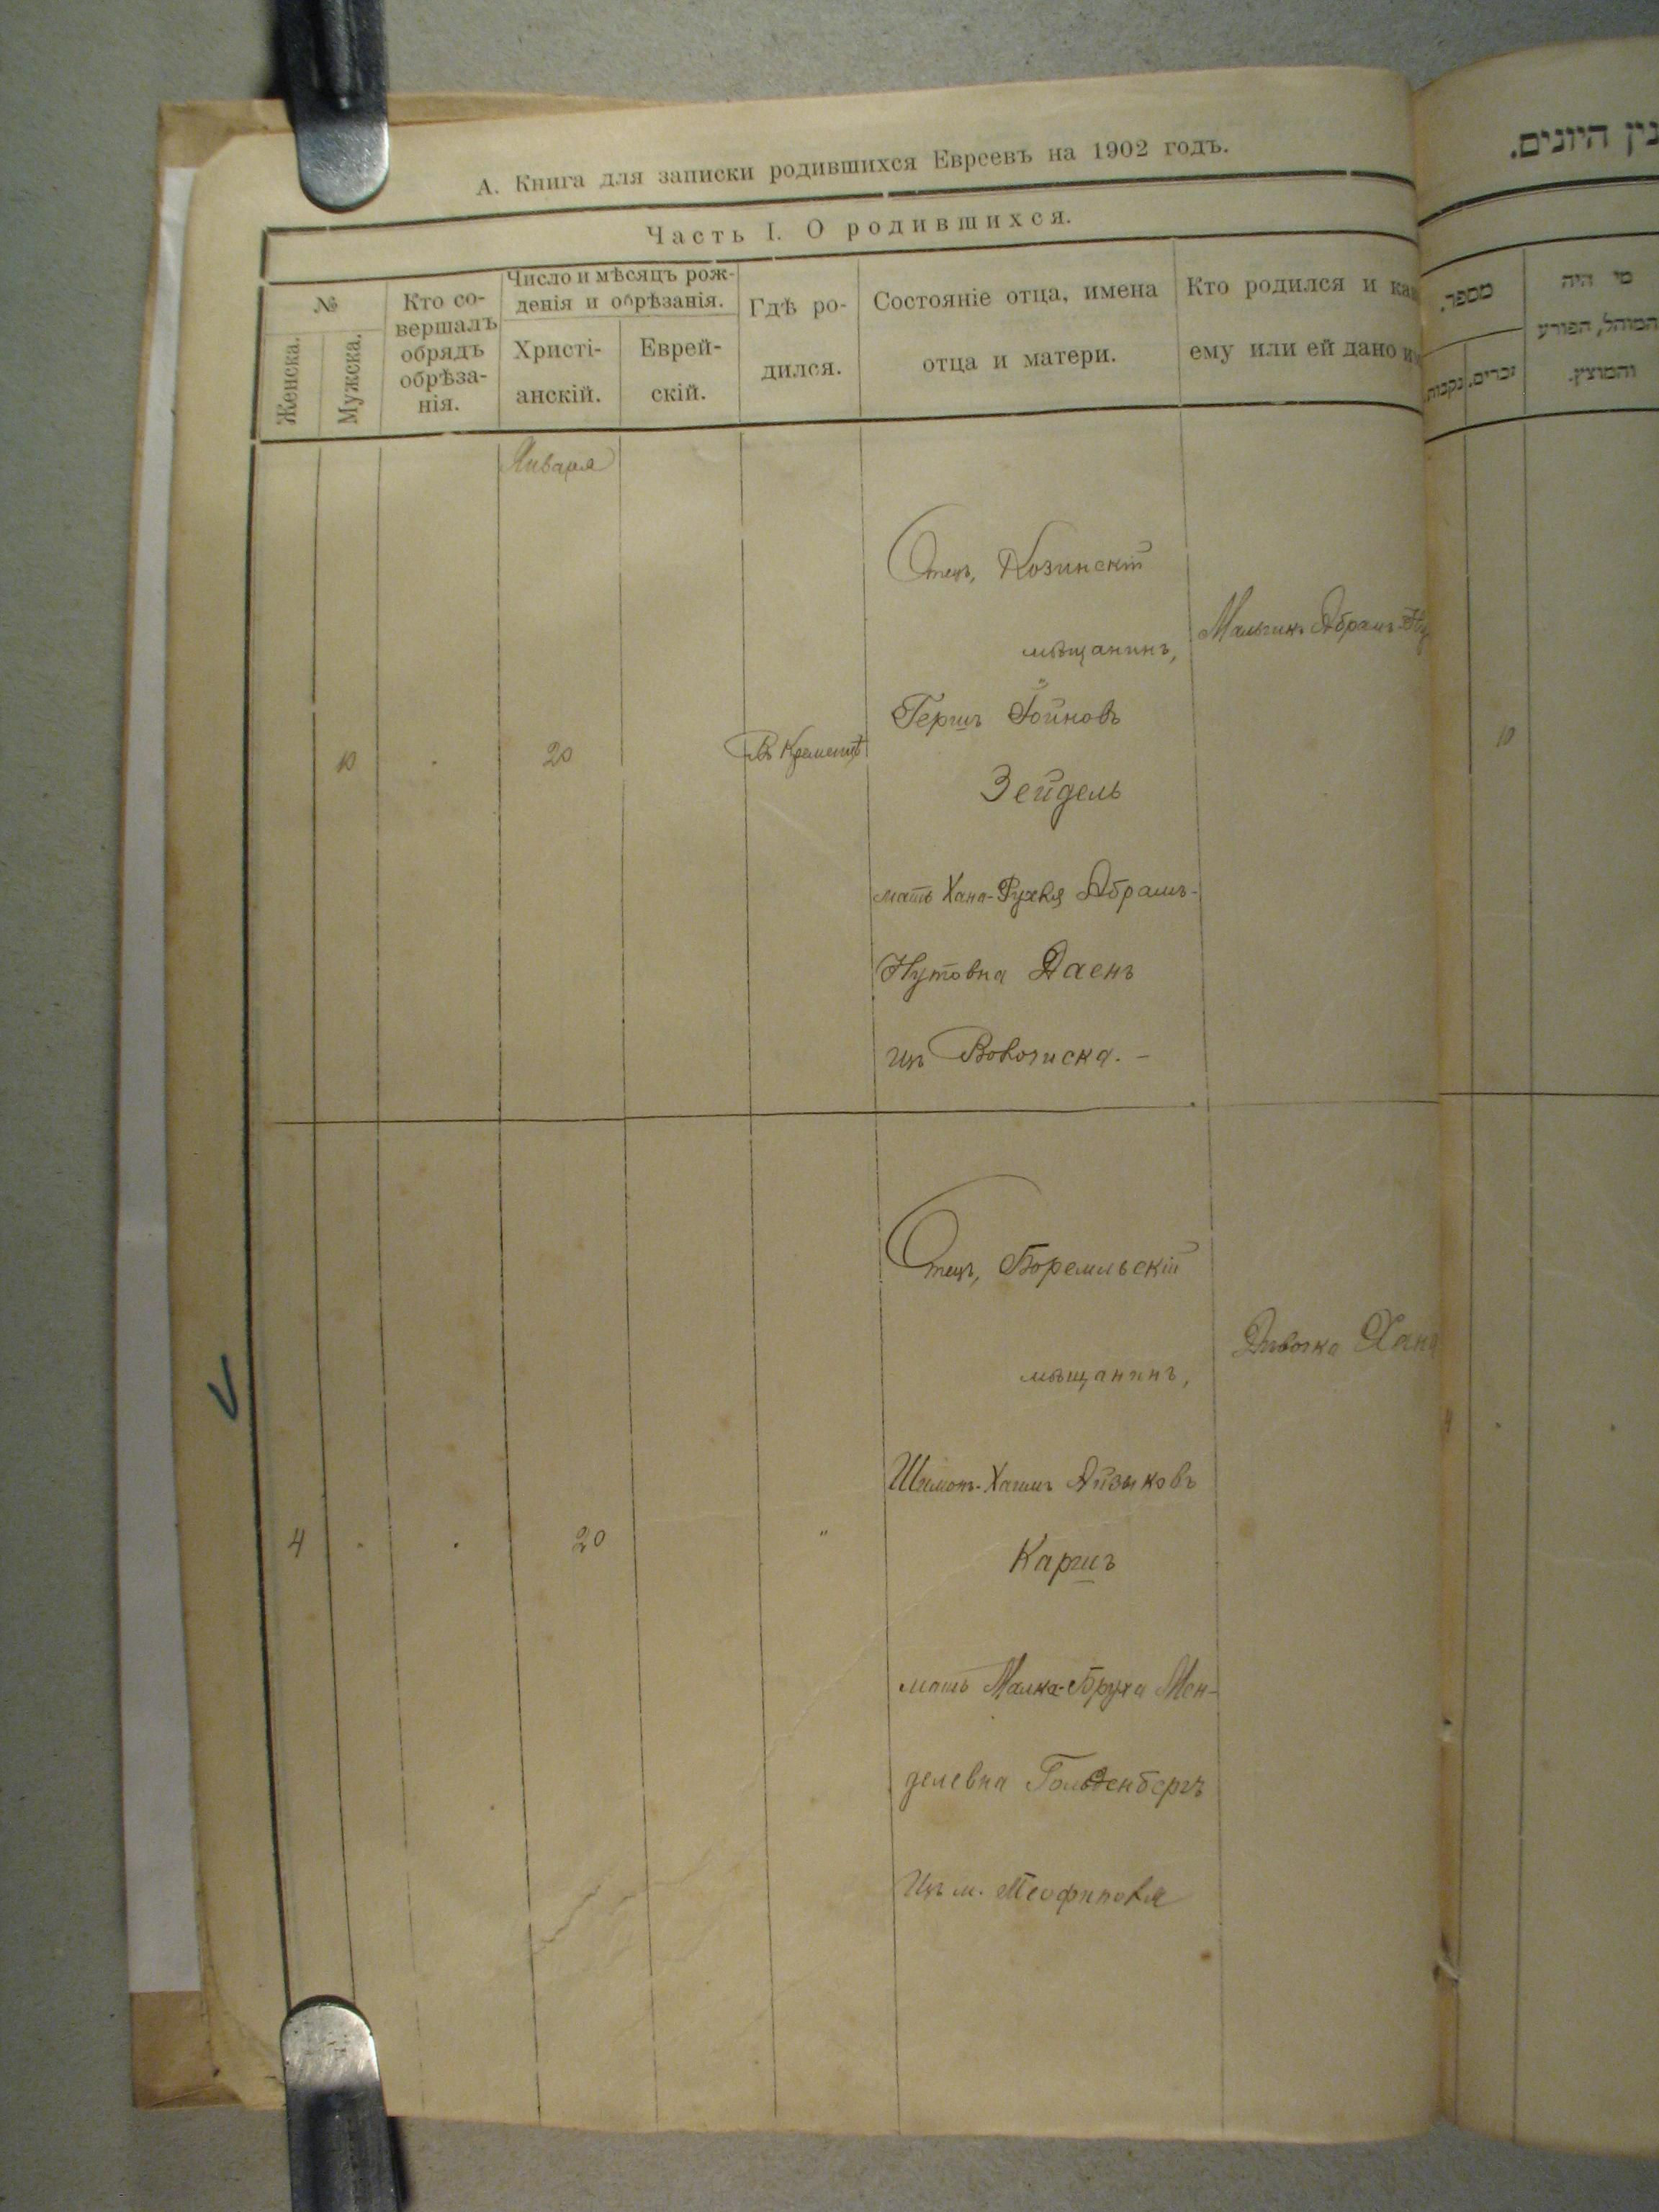 А. Книга для записки родившихся Евреевъ на 1902 годъ.
Часть I. О родившихся.
№
Женска.
Мужска.
Кто со-
вершалъ
обрядъ
обрѣза-
нія.
Число и мѣсяцъ рож-
денія и обрѣзанія.
Христі-
анскій.
Еврей-
скій.
Гдѣ ро-
дился.
Состояніе отца, имена
отца и матери.
Кто родился и
ему или ей дано
Января
10
20
Въ Кременцѣ
Отецъ, Козинскій
мѣщанинъ,
Гершъ Іойновъ
Зейдель
мать Хана-Рухля Абрамъ-
Нутовна Даенъ
изъ Волочиска. -
Мальчикъ Абрамъ-
4
20
"
Отецъ, Боремльскій
мѣщанинъ,
Шимонъ-Хаимъ Айзыковъ
Каршъ
мать Малка-Бруха Мен-
делевна Гольденбергъ
Изъ м. Теофиполя
Дѣвочка Хана
מספר.
נקבות.
זכרים.
מי היה
המוהל, הפורע
והמוצץ.
היונים.
10
4